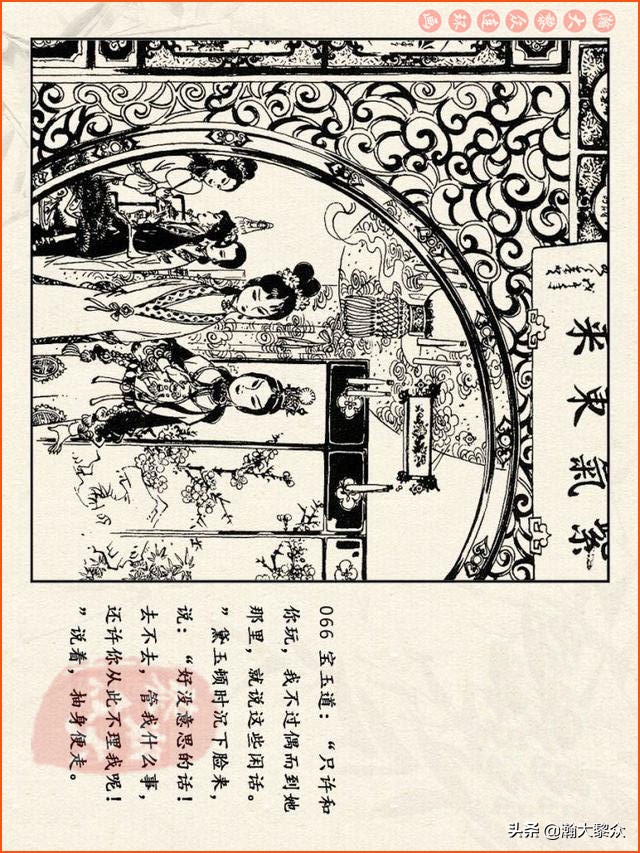 瀚大黎众连环画
紫氣東来
066 宝玉道：“只许和
你玩，我不过偶而到她
那里，就说这些闲话。
”黛玉顿时沉下脸来，
说：“好没意思的话！
去不去，管我什么事，
还许你从此不理我呢！
”说着，抽身便走。
头条 @瀚大黎众